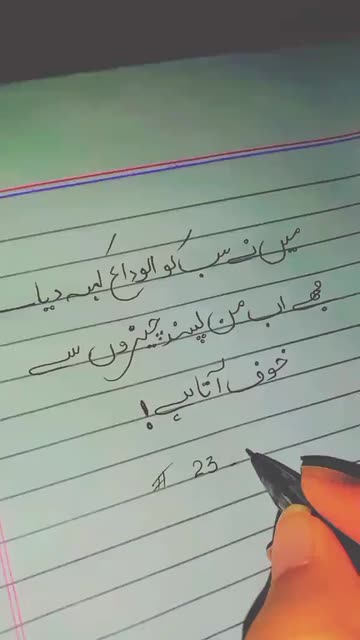 میں نے سب کو الوداع کہہ دیا
مجھے اب من پسند چیزوں سے
خوف آتا ہے!
23